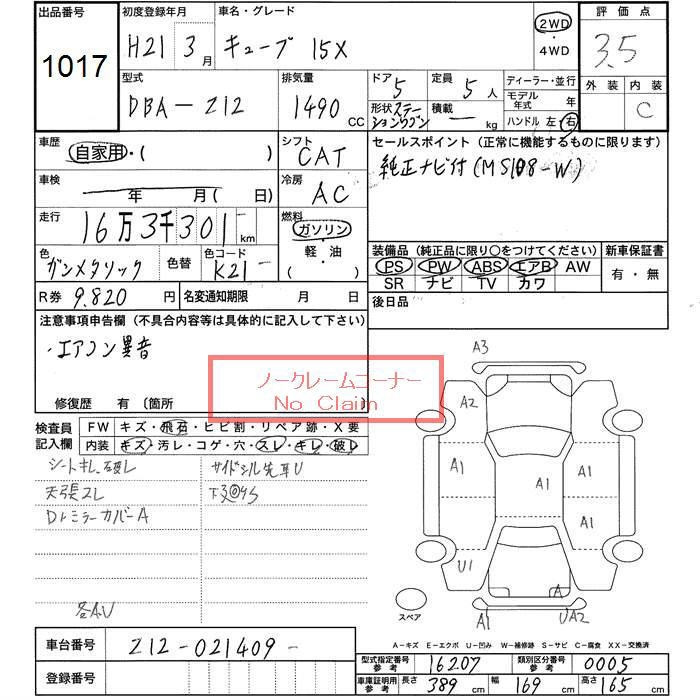 出品番号
1017
初度登録年月
H21 3月
車名・グレード
キューブ 15X
2WD
・4WD
評価点
3.5
外装 内装
C
型式
DBA-Z12
排気量
1490 CC
ドア 5
定員 5人
ディーラー・並行
モデル年式 年
形状 ステーションワゴン
積載 - kg
ハンドル 左・右
車歴
自家用・( )
シフト
CAT
セールスポイント(正常に機能するものに限ります)
純正ナビ付(MS108-W)
車検
年 月( 日)
冷房
AC
走行
16万3千301 km
燃料
ガソリン
・軽・油
( )
色
ガンメタリック
色替
色コード
K21-
装備品(純正品に限り○をつけてください)
新車保証書
PS PW ABS エアB AW
SR ナビ TV カワ
有・無
R券 9.820 円
名変通知期限 月 日
後日品
注意事項申告欄(不具合内容等は具体的に記入して下さい)
・エアコン異音
ノークレームコーナー
No Claim
修復歴 有(箇所
検査員記入欄
FW キズ・飛石・ヒビ割・リペア跡・X要
内装 キズ・汚レ・コゲ・穴・スレ・キレ・破レ
シートキレ.破レ
サイドシル先耳U
天張スレ
Dトミラーカバー A
各A.U
A3
A2
A1
A1
A1
A1
U1
A
A1
UA2
スペア
A-キズ E-エクボ U-凹み W-補修跡 S-サビ C-腐食 XX-交換済
車台番号
Z12-021409-
登録番号
型式指定番号 参考
16207
類別区分番号 参考
0005
車庫証明用 参考
長さ 389 cm
幅 169 cm
高さ 165 cm